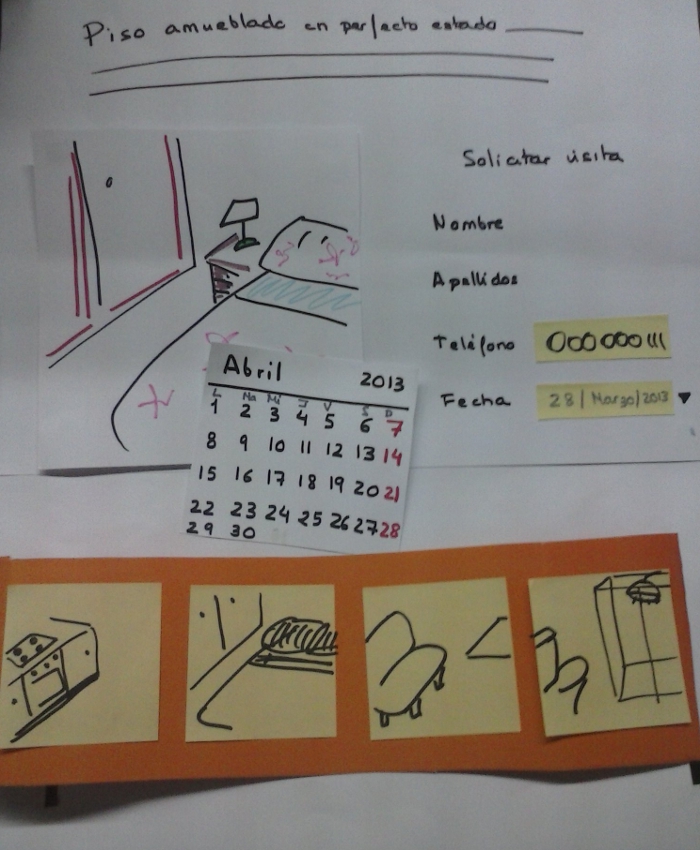 Piso amueblado en perfecto estado
Solicitar visita
Nombre
Apellidos
Teléfono 000000111
Fecha 28/Marzo/2013
Abril 2013
L Ma Mi J V S D
1 2 3 4 5 6 7
8 9 10 11 12 13 14
15 16 17 18 19 20 21
22 23 24 25 26 27 28
29 30